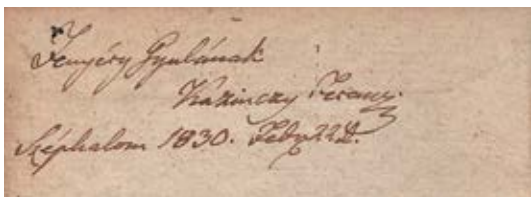 Fenyéry Gyulának
Kazinczy Ferencz.
Széphalom 1830. Febr. 22d.